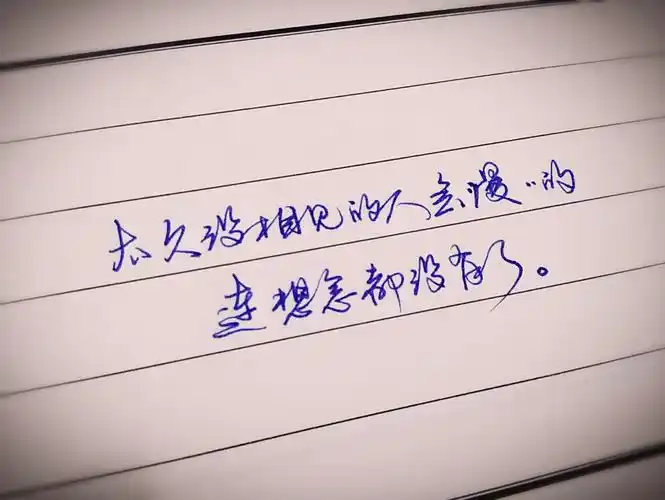 太久没相见的人会慢〃的
连想念都没有了。